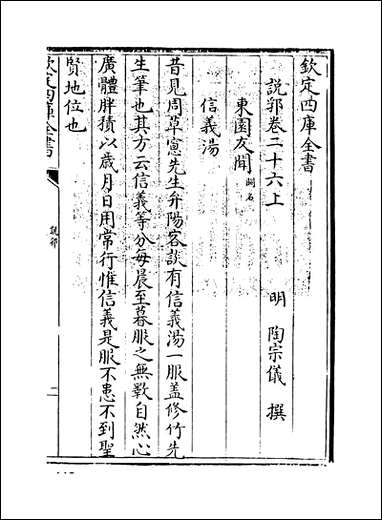 欽定四庫全書
說郛卷二十六上
明 陶宗儀 撰
東園友聞 闕名
信義湯
昔見周草窻先生弁陽客談有信義湯一服盖修竹先
生筆也其方云信義等分每晨至暮服之無斁自然心
廣體胖積以歲月日用常行惟信義是服不患不到聖
賢地位也
欽定四庫全書
說郛